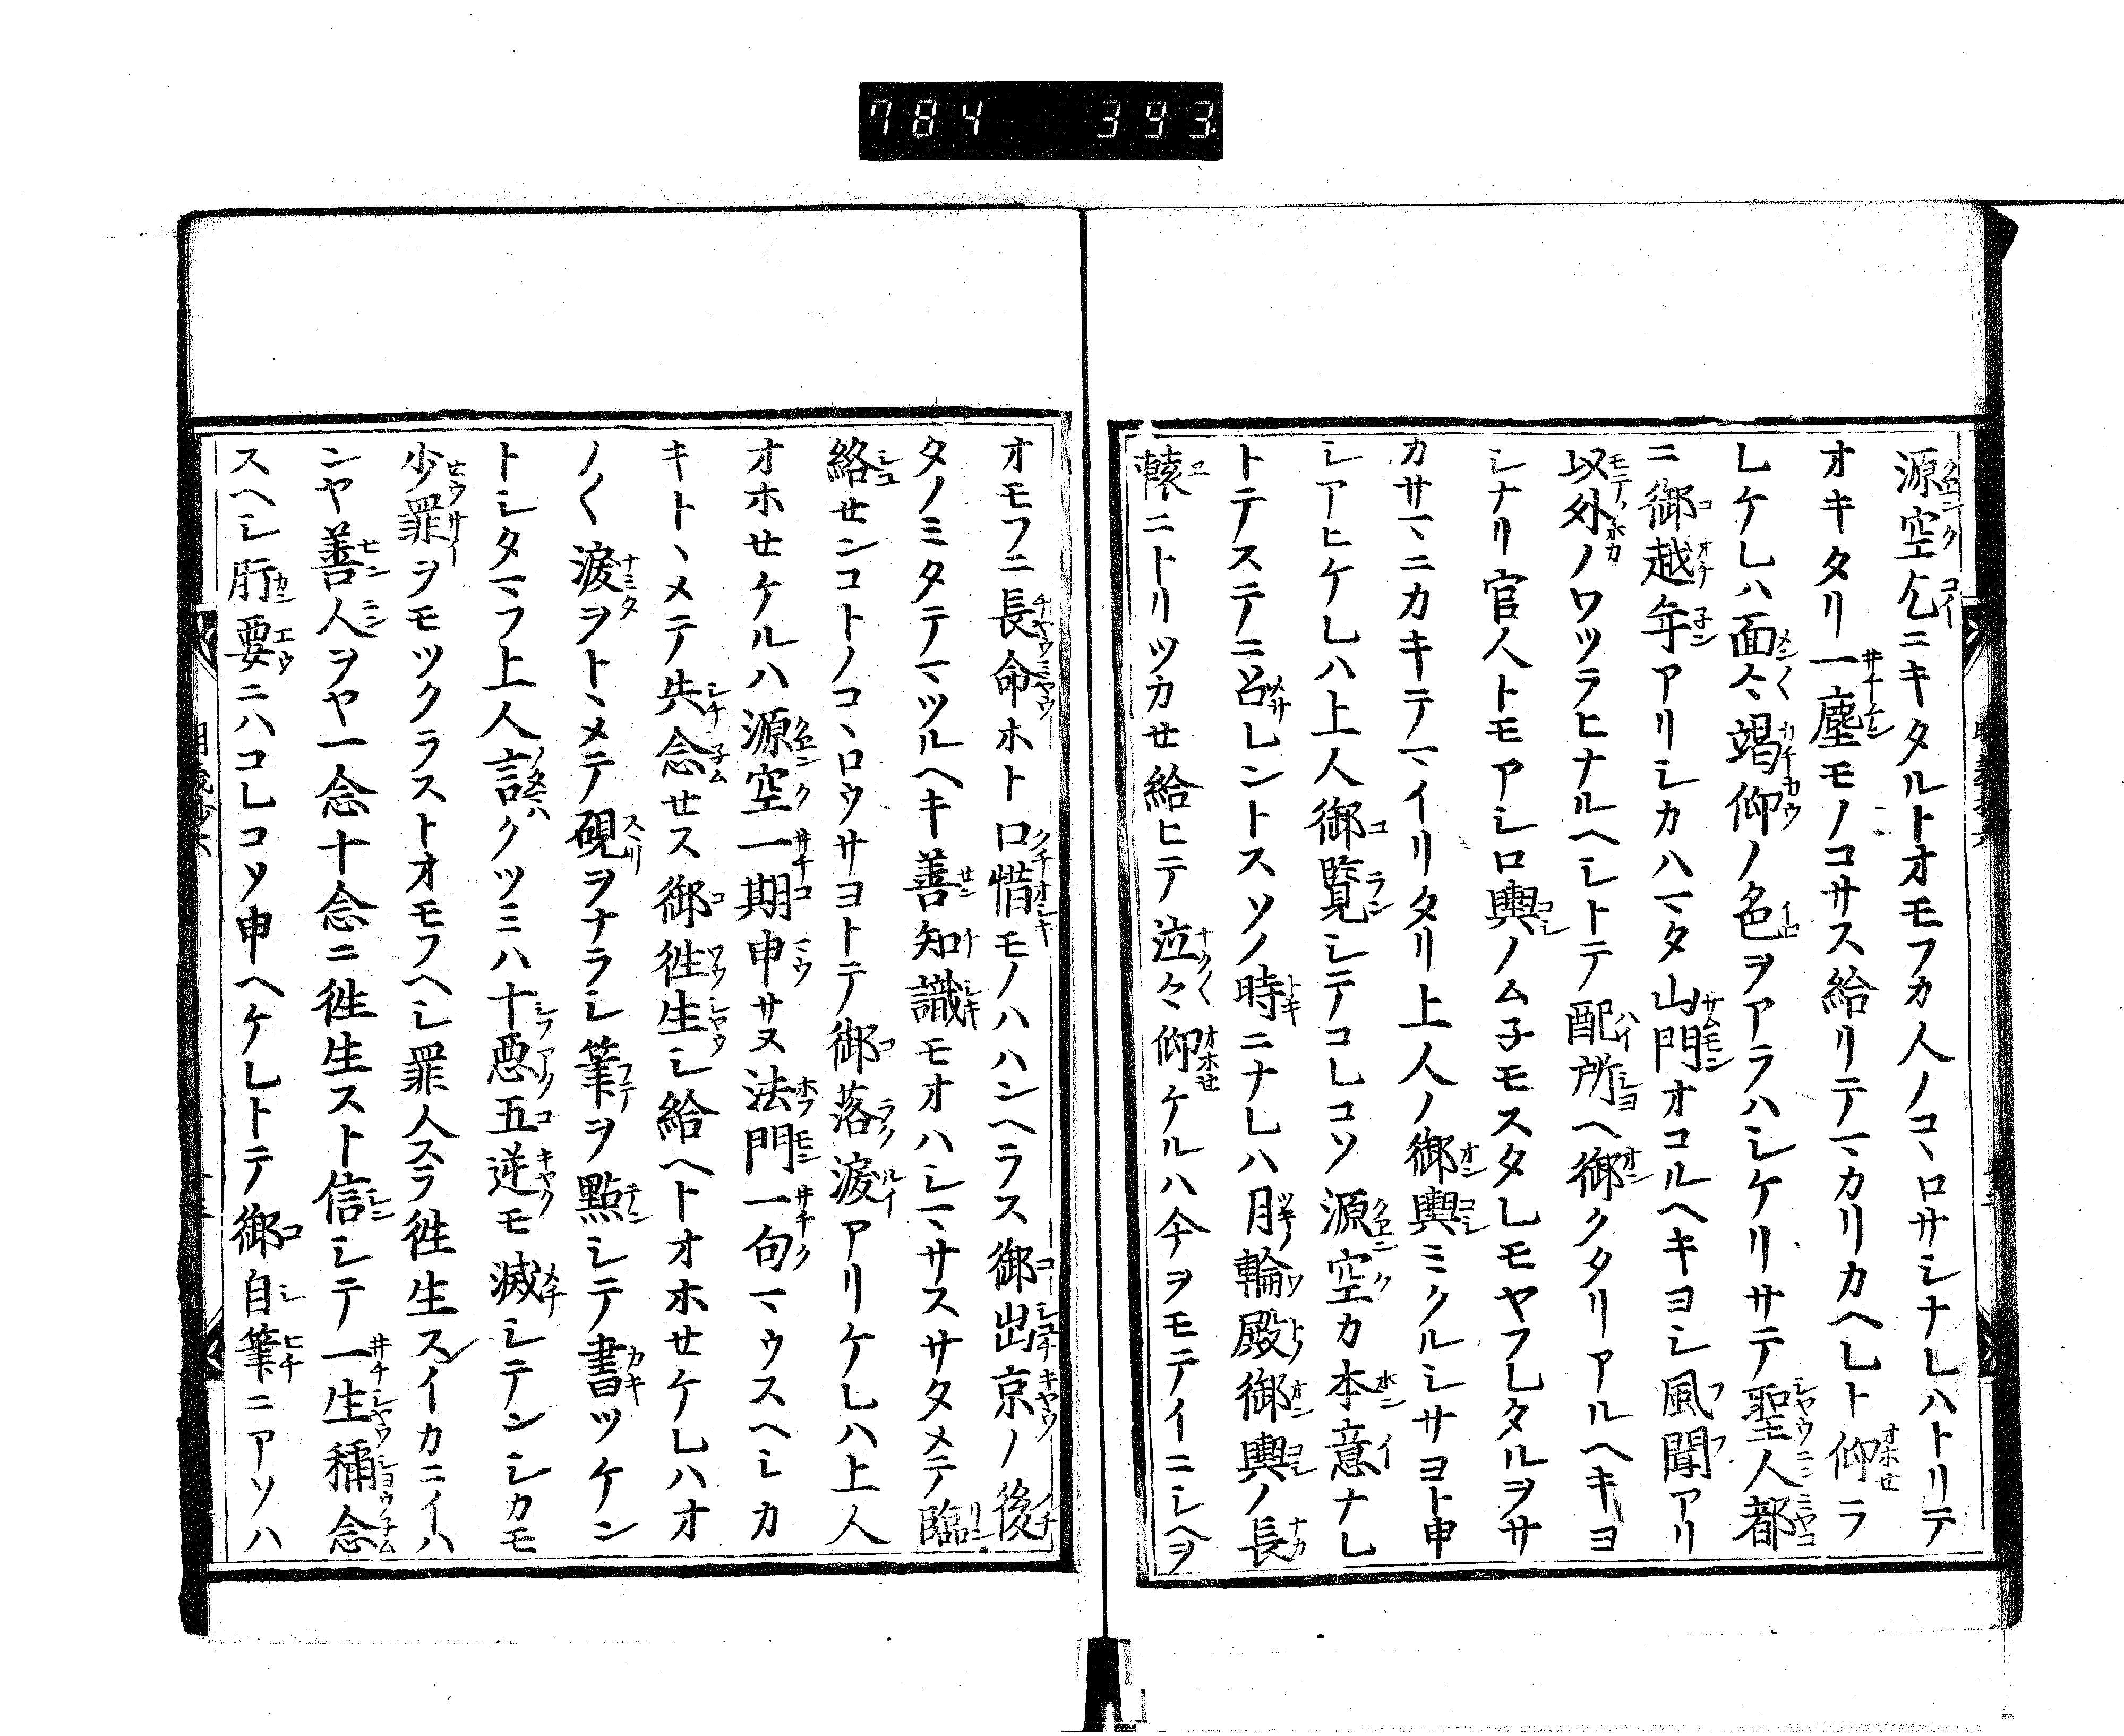 784 393
源空乞ニキタルトオモフカ人ノコヽロサシナレハトリテ
オキタリ一塵モノコサス給リテマカリカヘレト仰ラ
レケレハ面々竭仰ノ色ヲアラハシケリサテ聖人都
ニ御越年アリシカハマタ山門オコルヘキヨシ風聞アリ
以外ノワツラヒナルヘシトテ配所ヘ御クタリアルヘキヨ
シナリ官人トモアシロ輿ノム子モスタレモヤフレタルヲサ
カサマニカキテマイリタリ上人ノ御輿ミクルシサヨト申
シアヒケレハ上人御覧シテコレコソ源空カ本意ナレ
トテステニ召レントスソノ時ニナレハ月輪殿御輿ノ長
轅ニトリツカセ給ヒテ泣々仰ケルハ今ヲモテイニシヘヲ
オモフニ長命ホト口惜モノハハンヘラス御出京ノ後
タノミタテマツルヘキ善知識モオハシマサスサタメテ臨
絡センコトノコヽロウサヨトテ御落涙アリケレハ上人
オホセケルハ源空一期申サヌ法門一句マウスヘシカ
キトヽメテ失念セス御徃生シ給ヘトオホセケレハオ
ノ〱涙ヲトヽメテ硯ヲナラシ筆ヲ點シテ書ツケン
トシタマフ上人言クツミハ十悪五逆モ滅シテンシカモ
少罪ヲモツクラストオモフヘシ罪人スラ徃生スイカニイハ
ンヤ善人ヲヤ一念十念ニ徃生スト信シテ一生稱念
スヘシ肝要ニハコレコソ申ヘケレトテ御自筆ニアソハ